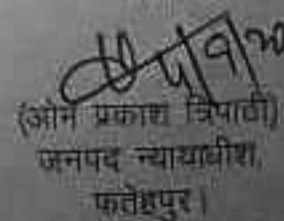 (ओम प्रकाश त्रिपाठी)
जनपद न्यायाधीश,
फतेहपुर।